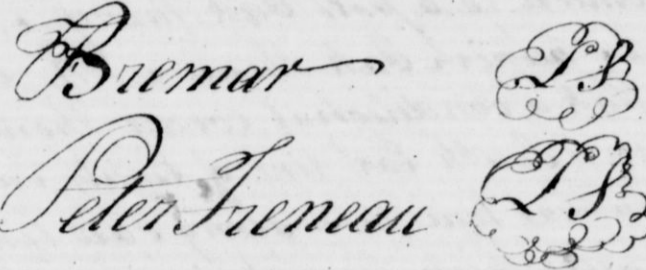 Bremar LS
Peter Freneau LS